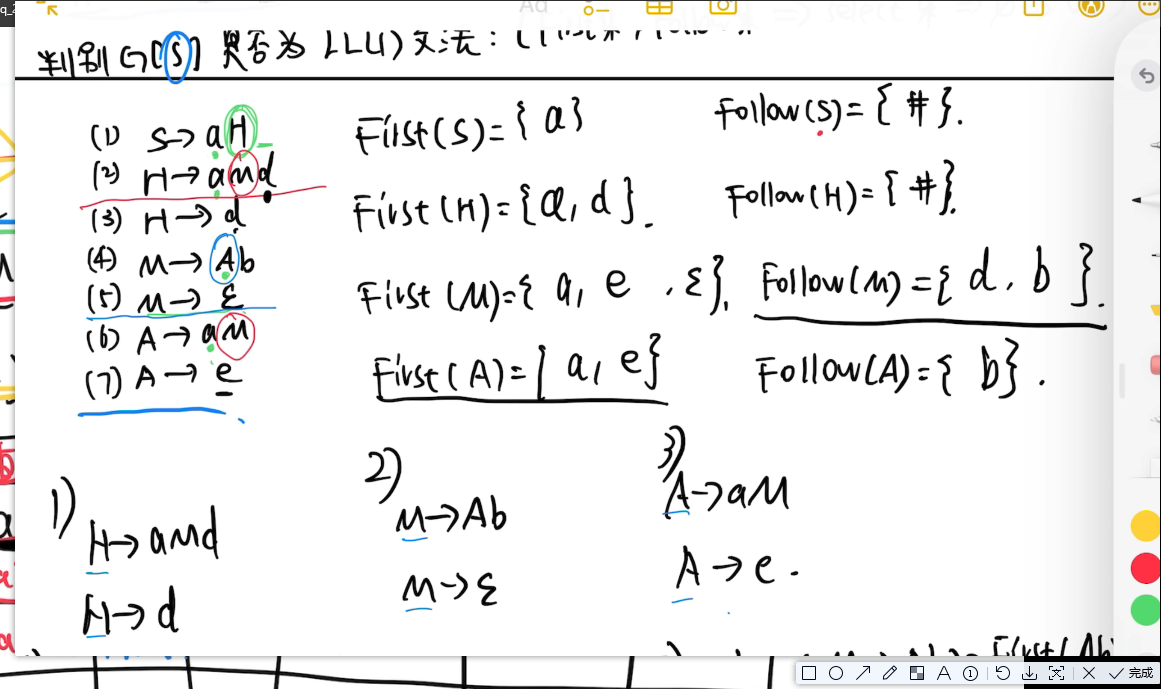 判别G[S]是否为LL(1)文法:
(1) S→aH
(2) H→aMd
(3) H→d
(4) M→Ab
(5) M→ε
(6) A→aM
(7) A→e
First(S)={a}
First(H)={a,d}.
First(M)={a,e,ε}.
First(A)={a,e}
Follow(S)={#}.
Follow(H)={#}.
Follow(M)={d,b}.
Follow(A)={b}.
1)
H→aMd
H→d
2)
M→Ab
M→ε
3)
A→aM
A→e.
First(Ab)
完成